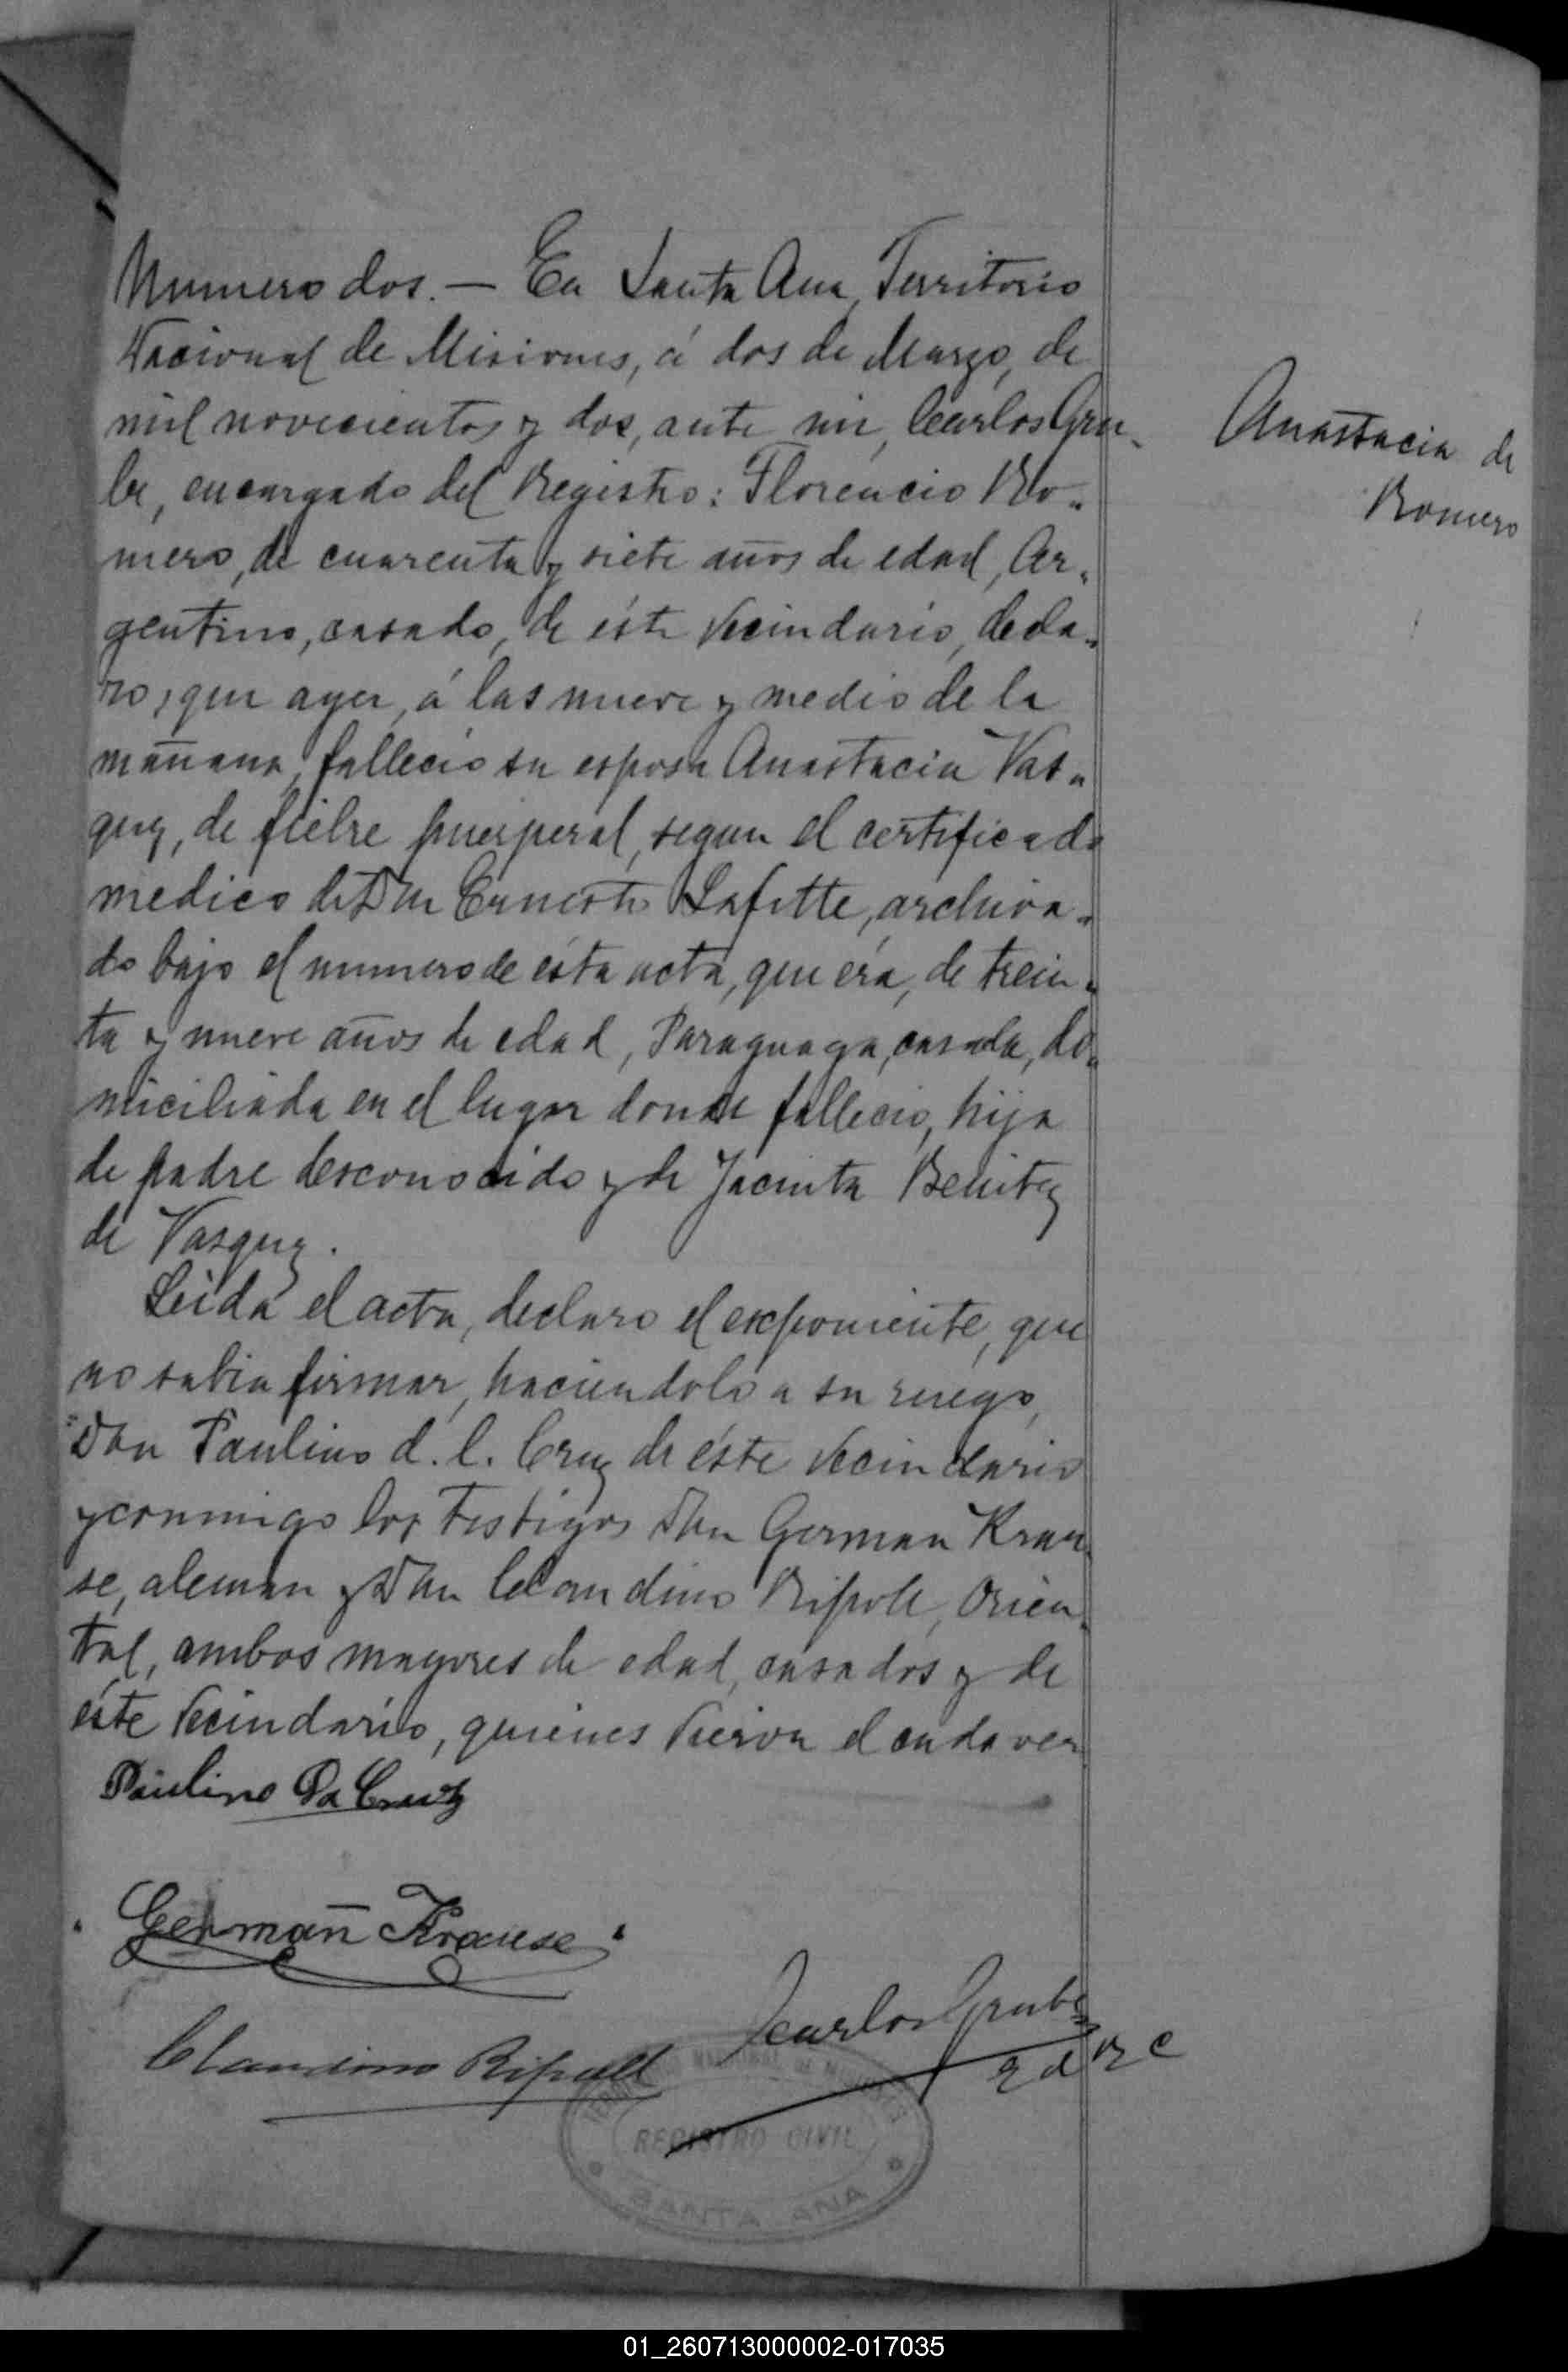 Numero dos. — En Santa Ana, Territorio
Nacional de Misiones, á dos de Marzo, de
mil novecientos y dos, ante mi, Carlos Gru-
be, encargado del Registro: Florencio Ro-
mero, de cuarenta y siete años de edad, Ar-
gentino, casado, de éste vecindario, decla-
ro, que ayer, á las nueve y medio de la
mañana, fallecio su esposa Anastacia Vas-
quez, de fiebre puerperal, segun el certificado
medico de Don Ernesto Lafitte, archiva-
do bajo el numero de ésta acta, que éra, de trein-
ta y nueve años de edad, Paraguaya, casada, do-
miciliada en el lugar donde fallecio, hija
de padre desconocido y de Jacinta Benitez
de Vasquez.
Leida el acta, declaro el exponiente, que
no sabia firmar, haciendolo a su ruego,
Don Paulino d. l. Cruz de éste vecindario
y conmigo los testigos Don German Krau-
se, aleman y Don Claudino Ripoll, Orien-
tal, ambos mayores de edad, casados y de
éste vecindario, quienes vieron el cadaver
Paulino Da Cruz
German Krause
Claudino Ripoll
Carlos Grube
E d R C
TERRITORIO NACIONAL DE MISIONES
REGISTRO CIVIL
SANTA ANA
Anastacia de
Romero
01_260713000002-017035